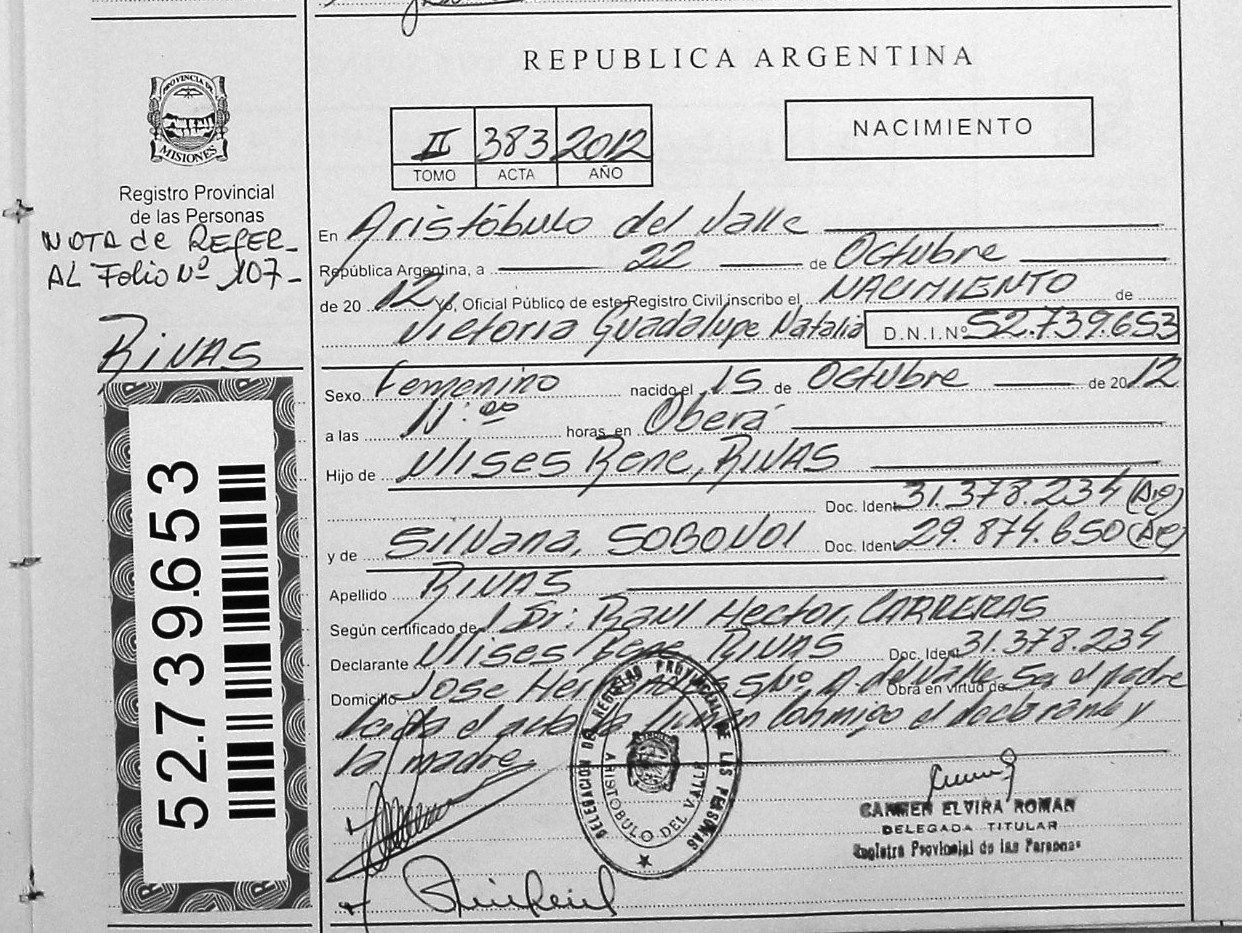 REPUBLICA ARGENTINA
PROVINCIA DE
MISIONES
Registro Provincial
de las Personas
NOTA de REFER_
AL Folio Nº 107-
RIVAS
52.739.653
II 383 2012
TOMO ACTA AÑO
NACIMIENTO
En Aristóbulo del Valle
República Argentina, a 22 de Octubre
de 20 12 Yo, Oficial Público de este Registro Civil inscribo el NACIMIENTO de
Victoria Guadalupe Natalia D.N.I.Nº 52.739.653
Sexo Femenino nacido el 15 de Octubre de 2012
a las 11:00 horas, en Oberá
Hijo de Ulises Rene, RIVAS
Doc. Ident 31.378.234
y de Silvana, SOBONDI Doc. Ident 29.874.650
Apellido RIVAS
Según certificado de Dr: Raul Hector, CARRERAS
Declarante Ulises Rene RIVAS Doc. Ident 31.378.234
Domicilio Jose Hernandez S/Nº, A. del Valle Obra en virtud de Ser el padre
el acta firman conmigo el declarante y
la madre
DELEGACION DEL REGISTRO PROVINCIAL DE LAS PERSONAS
ARISTOBULO DEL VALLE
CARMEN ELVIRA ROMAN
DELEGADA TITULAR
Registro Provincial de las Personas